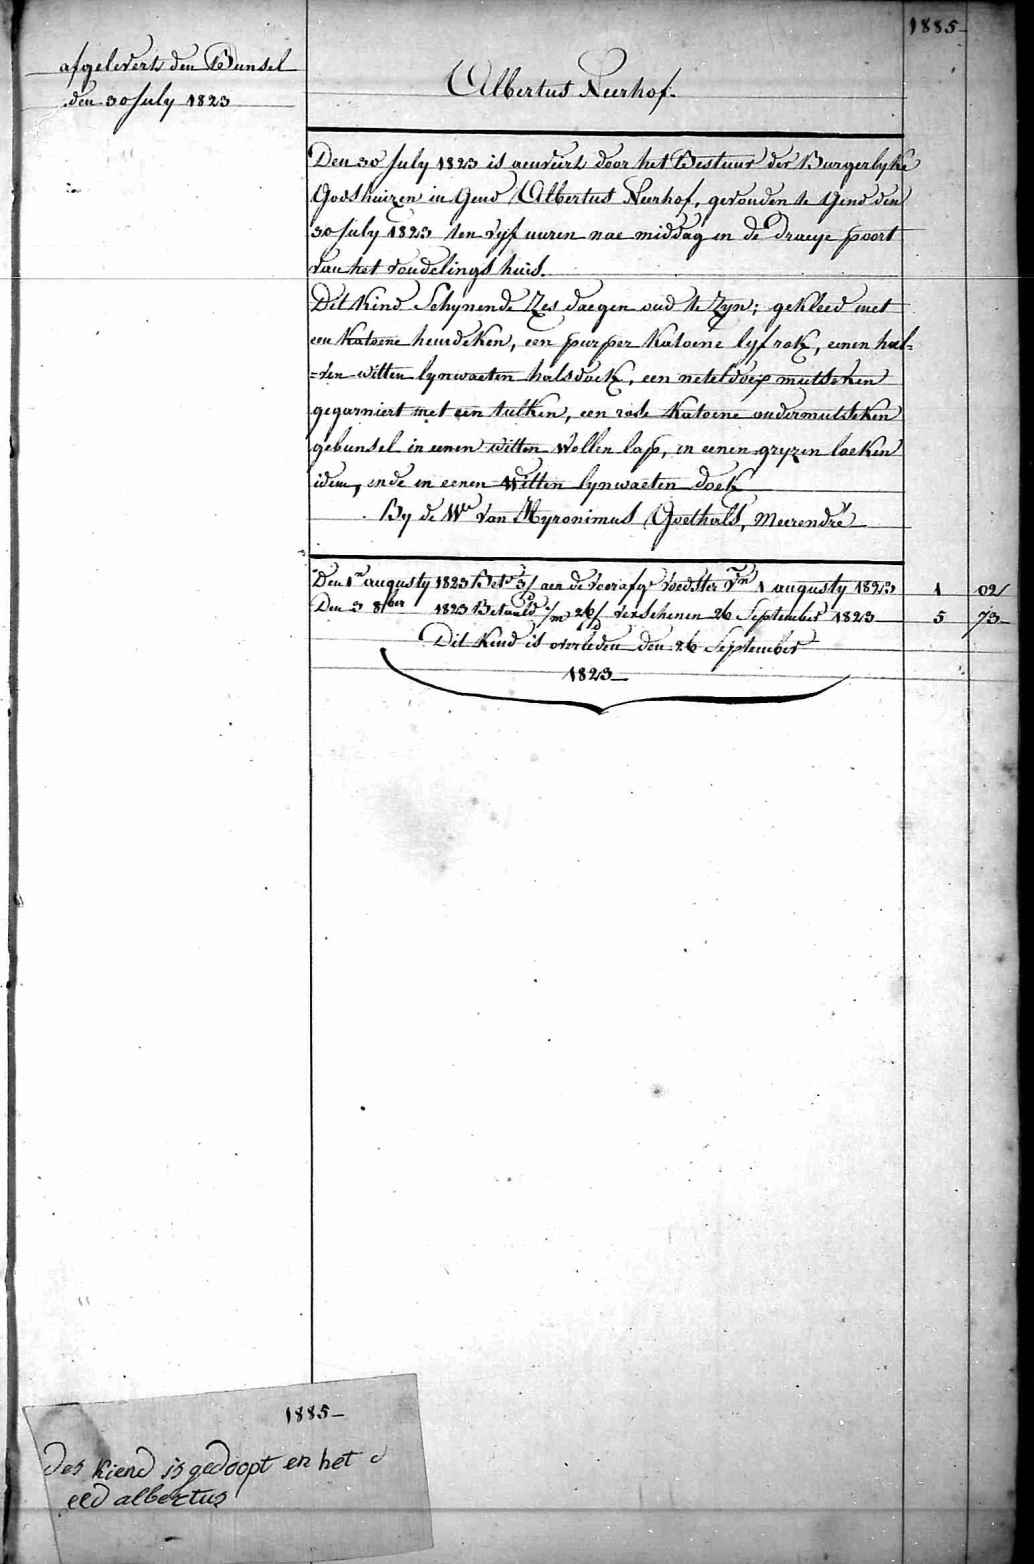 1885
afgeleverd den Bunsel
den 30 July 1823
Albertus Neerhof.
Den 30 July 1823 is aenveird door het Bestuur der Burgerlyke
Godshuizen in Gend Albertus Neerhof, gevonden te Gend den
30 July 1823 ten vyf uuren nae middag in de Draeye poort
van het vondelings huis.
Dit kind Schynende Zes daegen oud te Zyn; gekleed met
een katoene hemdeken, een purper katoene lyfrok, eenen hal=
=ven witten lynwaeten halsdoek, een neteldoex mutseken
gegarniert met een tulken, een rode katoene ondermutseken
gebunsel in eenen witten wollen lap, in eenen gryzen laeken
idem, ende in eenen witten lynwaeten doek
By de We van Hyronimus Goethals, Meerendré
Den 1n augusty 1823 Bet. 3/ aen de voorafge voedster vn 1 augusty 1823 1 02
Den 3 8ber 1823 Betaeld 2/m 26/d verschenen 26 September 1823 5 73
Dit kind is overleden den 26 September
1823
1885
des kiend is gedoopt en het
eed albertus